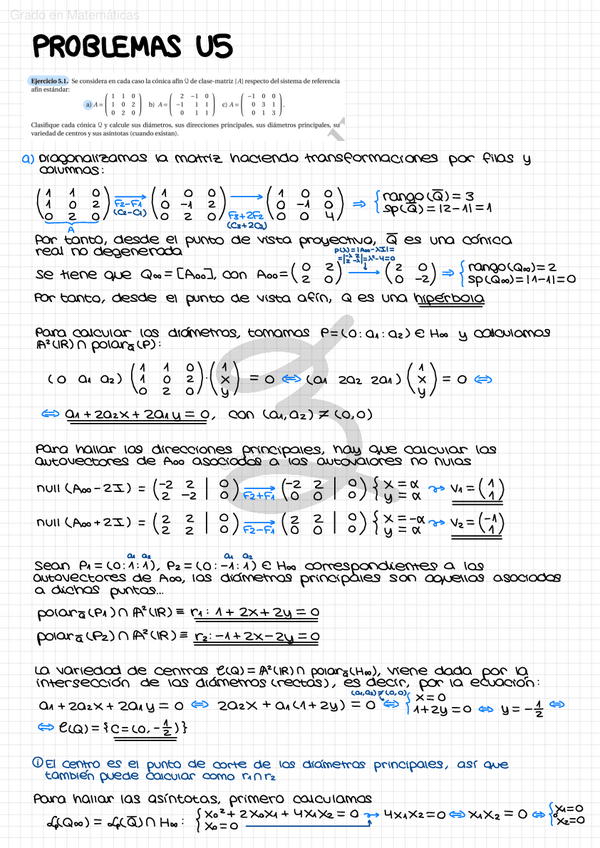 Grado en Matemáticas
PROBLEMAS U5
Ejercicio 5.1. Se considera en cada caso la cónica afín Q de clase-matriz [A] respecto del sistema de referencia
afín estándar:
a) A = ( 1 1 0 / 1 0 2 / 0 2 0 ) b) A = ( 2 −1 0 / −1 1 1 / 0 1 1 ) c) A = ( −1 0 0 / 0 3 1 / 0 1 3 ).
Clasifique cada cónica Q y calcule sus diámetros, sus direcciones principales, sus diámetros principales, su
variedad de centros y sus asíntotas (cuando existan).
a) Diagonalizamos la matriz haciendo transformaciones por filas y
columnas:
( 1 1 0 / 1 0 2 / 0 2 0 ) → F2-F1 (C2-C1) ( 1 0 0 / 0 -1 2 / 0 2 0 ) → F3+2F2 (C3+2C2) ( 1 0 0 / 0 -1 0 / 0 0 4 ) ⇒ { rango(Q̅) = 3
sp(Q̅) = |2-1| = 1
A
Por tanto, desde el punto de vista proyectivo, Q̅ es una cónica
real no degenerada
p(λ) = |A∞-λI| =
= |-λ 2 / 2 -λ| = λ²-4 = 0
Se tiene que Q∞ = [A∞], con A∞ = ( 0 2 / 2 0 ) → ( 2 0 / 0 -2 ) ⇒ { rango(Q∞) = 2
sp(Q∞) = |1-1| = 0
Por tanto, desde el punto de vista afín, Q es una hipérbola
Para calcular los diámetros, tomamos P = (0:a1:a2) ∈ H∞ y calculamos
A²(ℝ) ∩ polarQ̅(P):
(0 a1 a2) ( 1 1 0 / 1 0 2 / 0 2 0 ) · ( 1 / x / y ) = 0 ⇔ (a1 2a2 2a1) ( 1 / x / y ) = 0 ⇔
⇔ a1 + 2a2x + 2a1y = 0, con (a1,a2) ≠ (0,0)
Para hallar las direcciones principales, hay que calcular los
autovectores de A∞ asociados a los autovalores no nulos
null (A∞-2I) = ( -2 2 | 0 / 2 -2 | 0 ) → F2+F1 ( -2 2 | 0 / 0 0 | 0 ) { x = α / y = α ⇝ v1 = ( 1 / 1 )
null (A∞+2I) = ( 2 2 | 0 / 2 2 | 0 ) → F2-F1 ( 2 2 | 0 / 0 0 | 0 ) { x = -α / y = α ⇝ v2 = ( -1 / 1 )
a1 a2 a1 a2
Sean P1 = (0:1:1), P2 = (0:-1:1) ∈ H∞ correspondientes a los
autovectores de A∞, los diámetros principales son aquellos asociados
a dichos puntos...
polarQ̅(P1) ∩ A²(ℝ) ≡ r1: 1 + 2x + 2y = 0
polarQ̅(P2) ∩ A²(ℝ) ≡ r2: -1 + 2x - 2y = 0
La variedad de centros C(Q) = A²(ℝ) ∩ polarQ̅(H∞), viene dada por la
intersección de los diámetros (rectas), es decir, por la ecuación:
(a1,a2) ≠ (0,0)
a1 + 2a2x + 2a1y = 0 ⇔ 2a2x + a1(1+2y) = 0 ⇔ { x = 0 / 1+2y = 0 ⇔ y = -1/2 ⇔
⇔ C(Q) = {C = (0, -1/2)}
ⓘ El centro es el punto de corte de los diámetros principales, así que
también puede calcular como r1∩r2
Para hallar las asíntotas, primero calculamos
𝓛(Q∞) = 𝓛(Q̅) ∩ H∞: { x0² + 2x0x1 + 4x1x2 = 0 / x0 = 0 → 4x1x2 = 0 ⇔ x1x2 = 0 ⇔ { x1 = 0 / x2 = 0